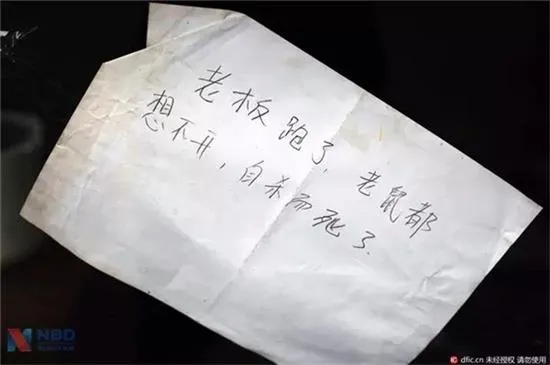 老板跑了,老鼠都
想不开,自杀而死了.
NBD
dfic.cn 未经授权 请勿使用